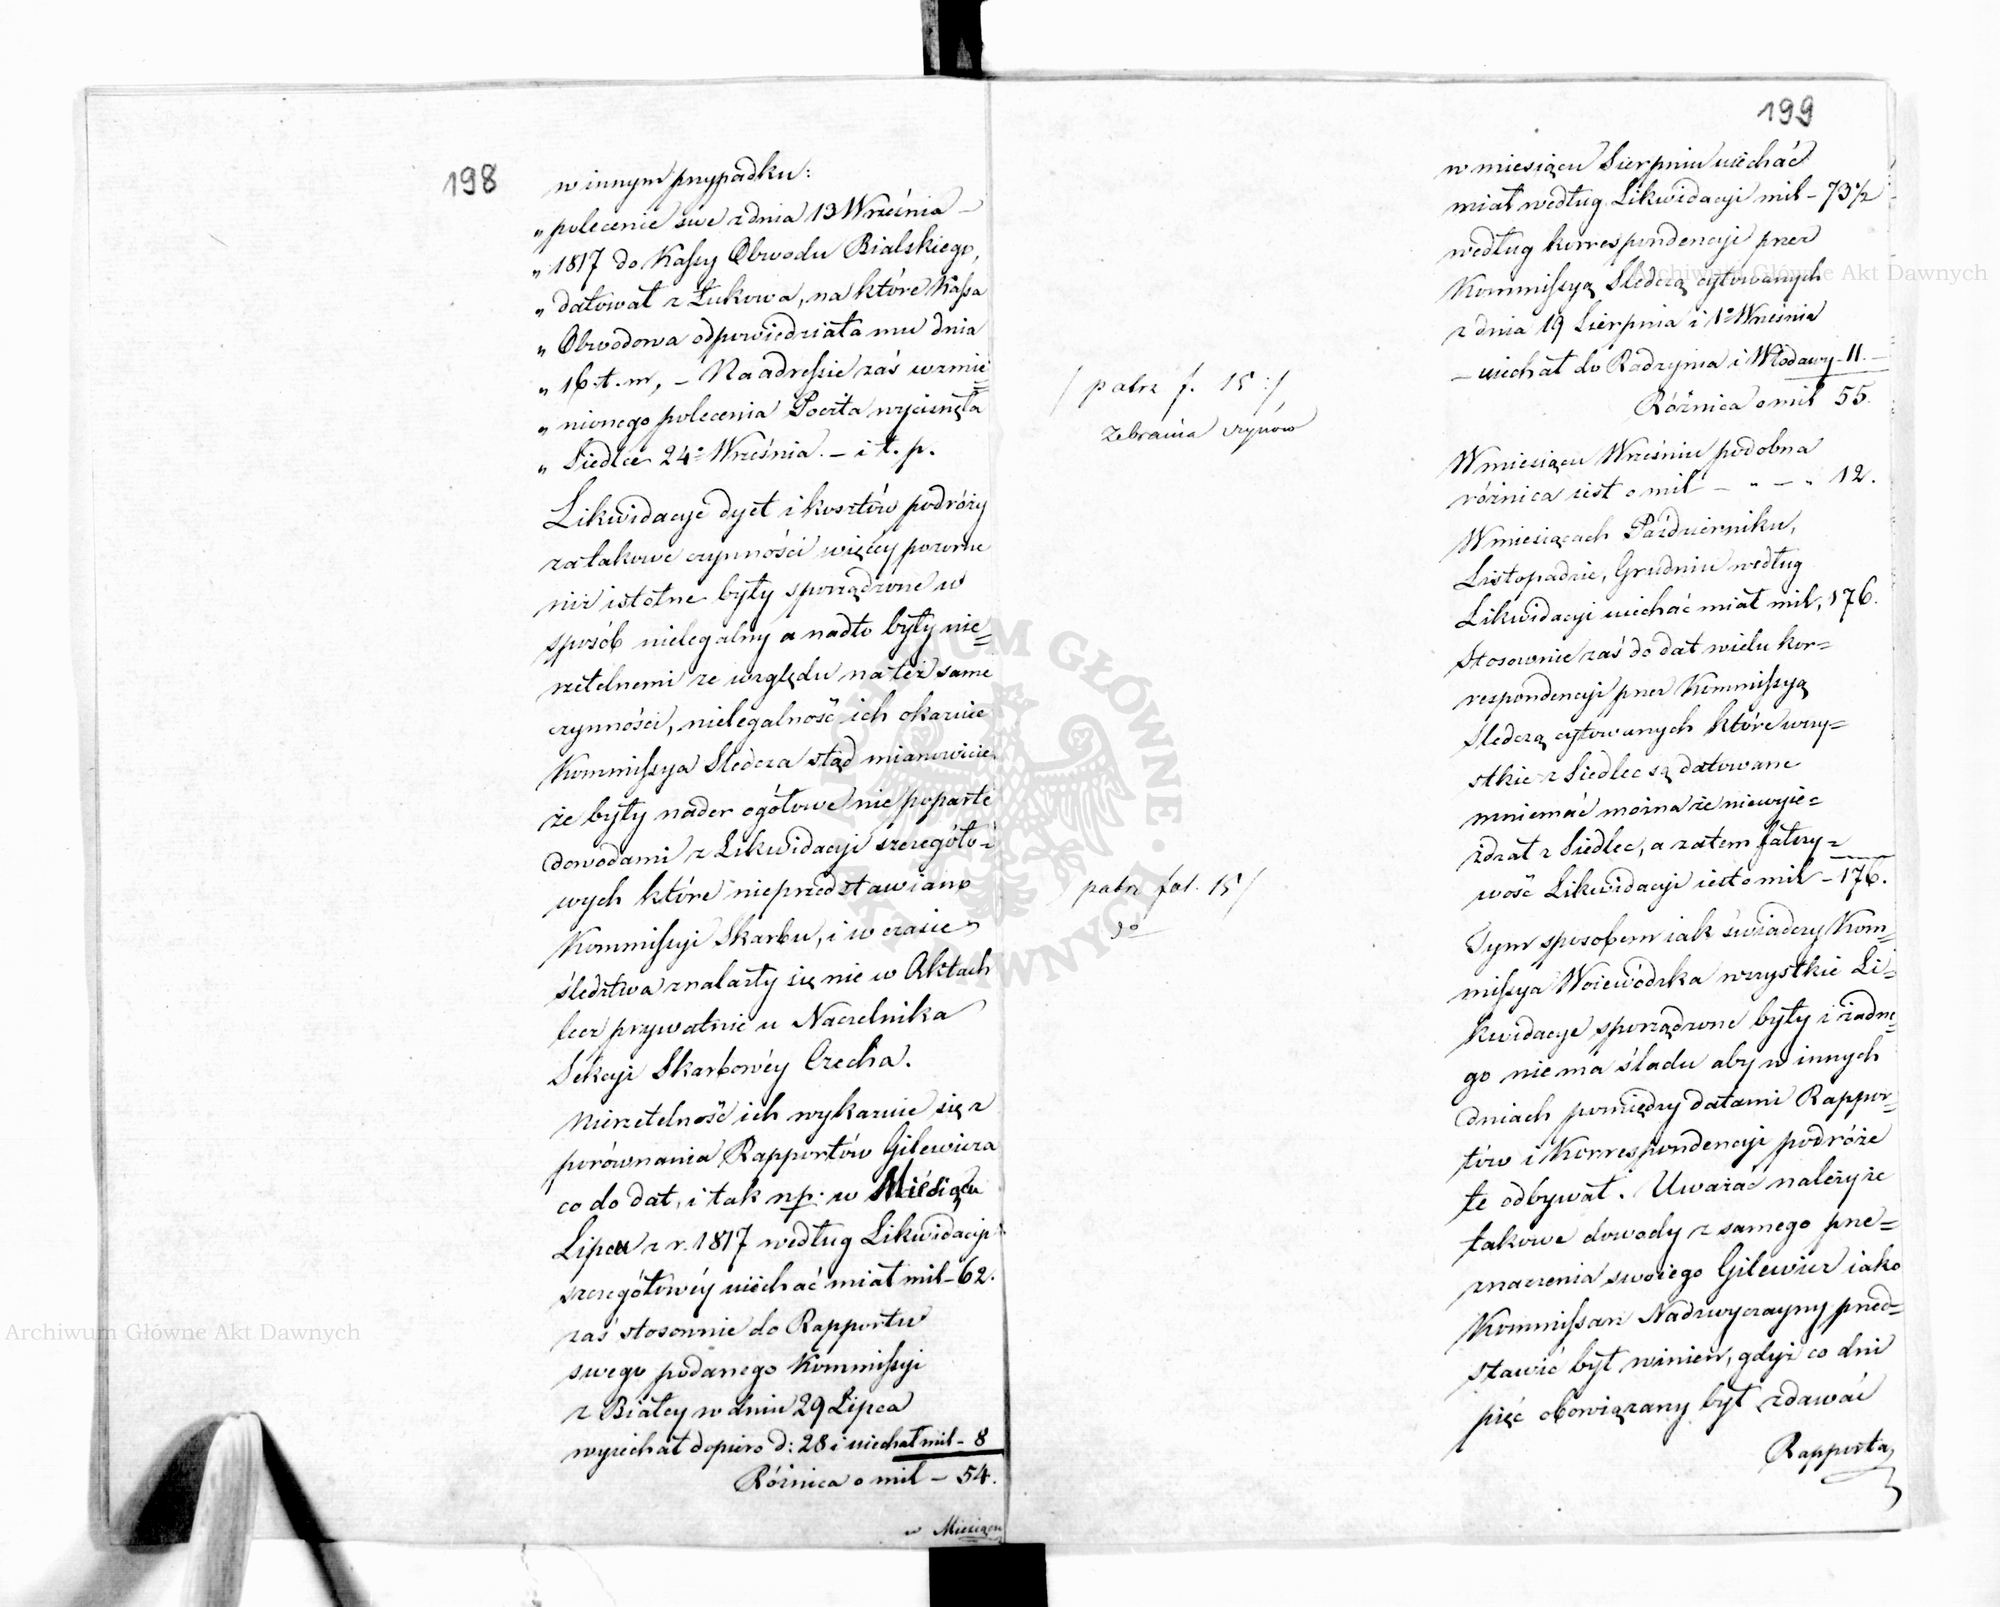 198
w innym przypadku:
„ polecenie swe z dnia 13 Września –
„ 1817 do Kassy Obwodu Bialskiego,
„ datował z Łukowa, na które Kassa
„ Obwodowa odpowiedziała mu dnia
„ 16. t. m, – Na adressie zaś wzmie=
„ nionego polecenia Poczta wycisnęła
„ Siedlce 24º Września. – i t. p.
Likwidacye dyet i kosztów podróży
za takowe czynności więcey pozorne
niż istotne były sporządzone w
sposób nielegalny a nadto były nie=
rzetelnemi ze względu na też same
czynności, nielegalność ich okazuie
Kommissya Śledcza stąd mianowicie,
że były nader ogółowe nie poparte
dowodami z Likwidacyi szczegóło=
wych które nieprzedstawiano
Kommissyi Skarbu, i w czasie
śledztwa znalazły się nie w Aktach
lecz prywatnie u Naczelnika
Sekcyi Skarbowéy Czecha.
Nierzetelność ich wykazuie się z
porównania Rapportów Gilewicza
co do dat, i tak np: w Miesiącu
Lipcu z r. 1817 według Likwidacyi
szczegółowéy uiechać miał mil – 62.
zaś stosownie do Rapportu
swego podanego Kommissyi
z Białey w dniu 29 Lipca
wyiechał dopiero d: 28 i uiechał mil – 8
Różnica o mil – 54.
w Miesiącu
/ patrz f. 15 :/
Zebrania czynów
/ patrz fol. 15 /
dº
199
w miesiącu Sierpniu uiechać
miał według Likwidacyi mil – 73½
według korrespondencyi przez
Kommissyą Śledczą cytowanych
z dnia 19 Sierpnia i 1º Września
– uiechał do Radzynia i Włodawy – 11. –
Różnica o mil 55.
W miesiącu Wrześniu podobna
różnica iest o mil – „ – „ 12.
W miesiącach Październiku,
Listopadzie, Grudniu według
Likwidacyi uiechać miał mil, 176.
Stosownie zaś do dat wielu kor=
respondencyi przez Kommissyą
Śledczą cytowanych które wszy=
stkie z Siedlec są datowane
mniemać można że niewyie=
zdzał z Siedlec, a zatem fałszy=
wość Likwidacyi iest o mil – 176.
Tym sposobem iak świadczy Kom=
missya Woiewódzka wszystkie Li=
kwidacye sporządzone były i żadne=
go nie ma śladu aby w innych
dniach pomiędzy datami Rappor=
tów i Korrespondencyi podróże
te odbywał. Uważać należy że
takowe dowody z samego prze=
znaczenia swoiego Gilewicz iako
Kommissarz Nadzwyczayny przed=
stawić był winien, gdyż co dni
pięć obowiązany był zdawać
Rapporta,
Archiwum Główne Akt Dawnych
Archiwum Główne Akt Dawnych
ARCHIWUM GŁÓWNE · AKT DAWNYCH ·